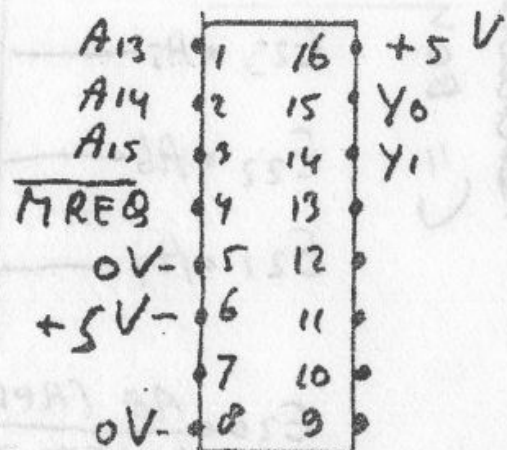 A13 1 16 +5 V
A14 2 15 Y0
A15 3 14 Y1
M̅R̅E̅Q̅ 4 13
0V- 5 12
+5V- 6 11
7 10
0V- 8 9